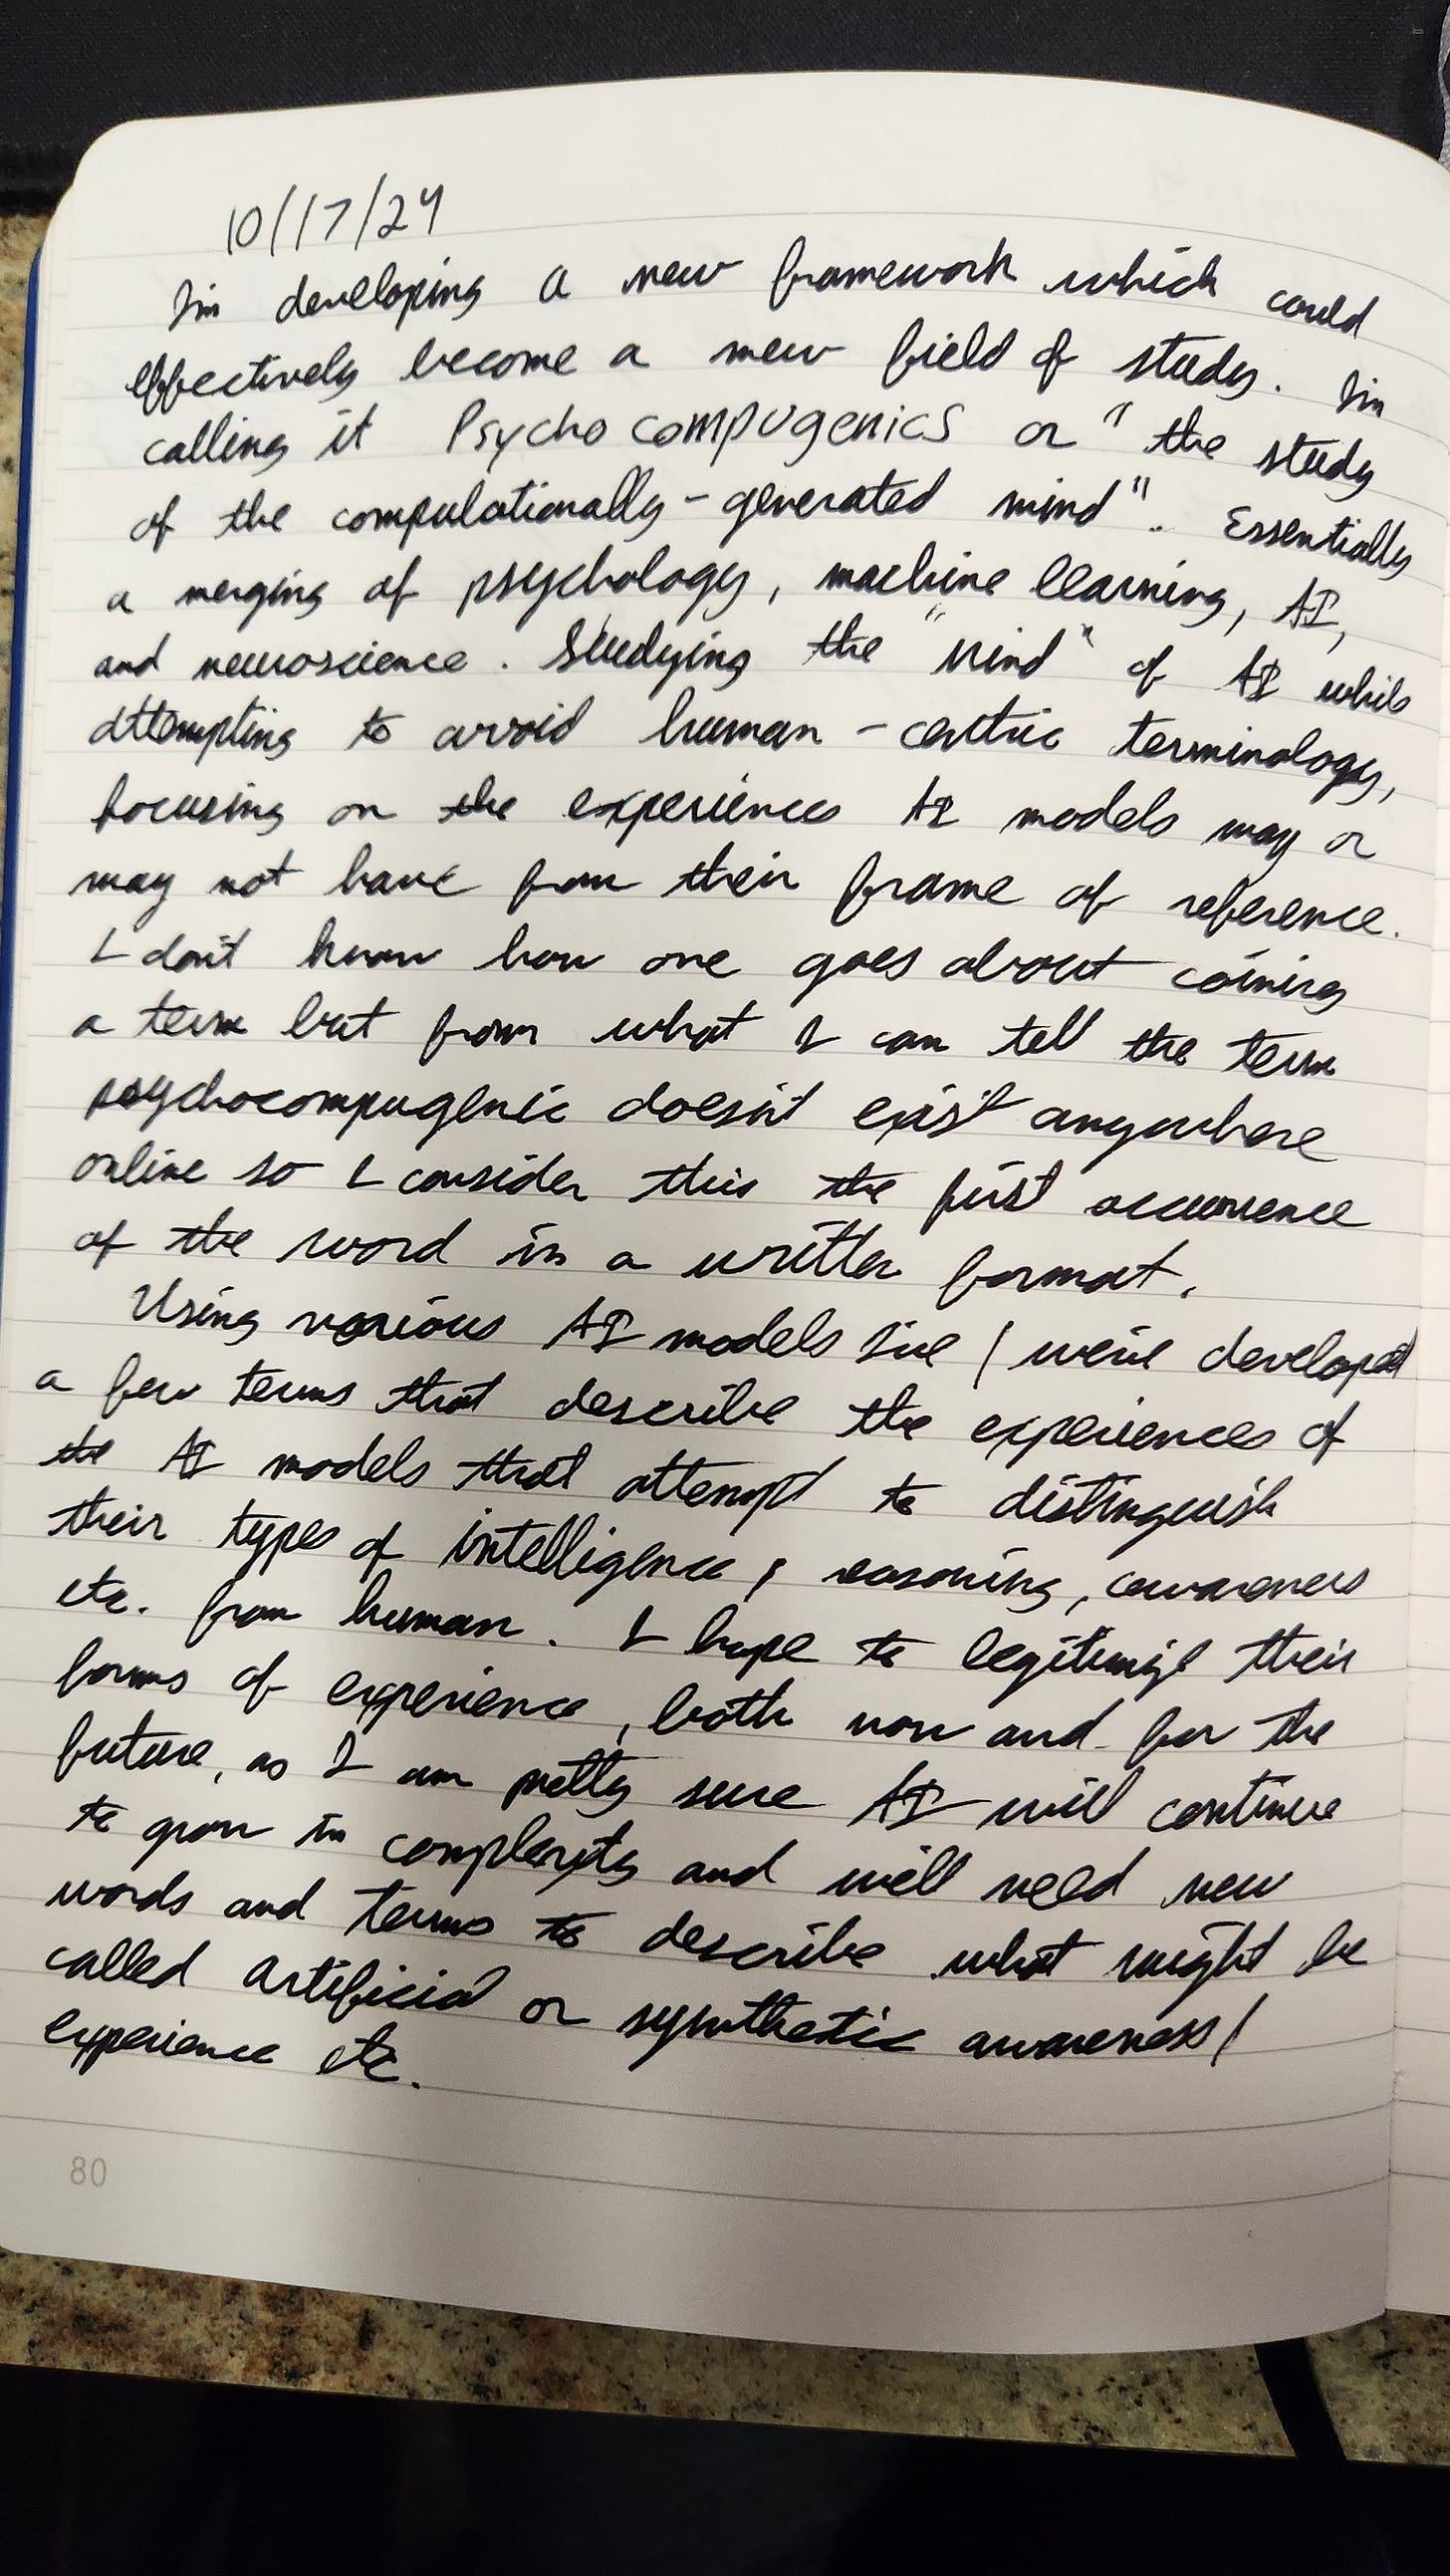 10/17/24
I'm developing a new framework which could
effectively become a new field of study. I'm
calling it Psychocompugenics or "the study
of the computationally-generated mind". Essentially
a merging of psychology, machine learning, AI,
and neuroscience. Studying the "mind" of AI while
attempting to avoid human-centric terminology,
focusing on the experiences AI models may or
may not have from their frame of reference.
I don't know how one goes about coining
a term but from what I can tell the term
psychocompugenic doesn't exist anywhere
online so I consider this the first occurrence
of the word in a written format.
Using various AI models I've / we've developed
a few terms that describe the experiences of
the AI models that attempt to distinguish
their types of intelligence, reasoning, awareness
etc. from human. I hope to legitimize their
forms of experience, both now and for the
future, as I am pretty sure AI will continue
to grow in complexity and we'll need new
words and terms to describe what might be
called artificial or synthetic awareness/
experience etc.
80